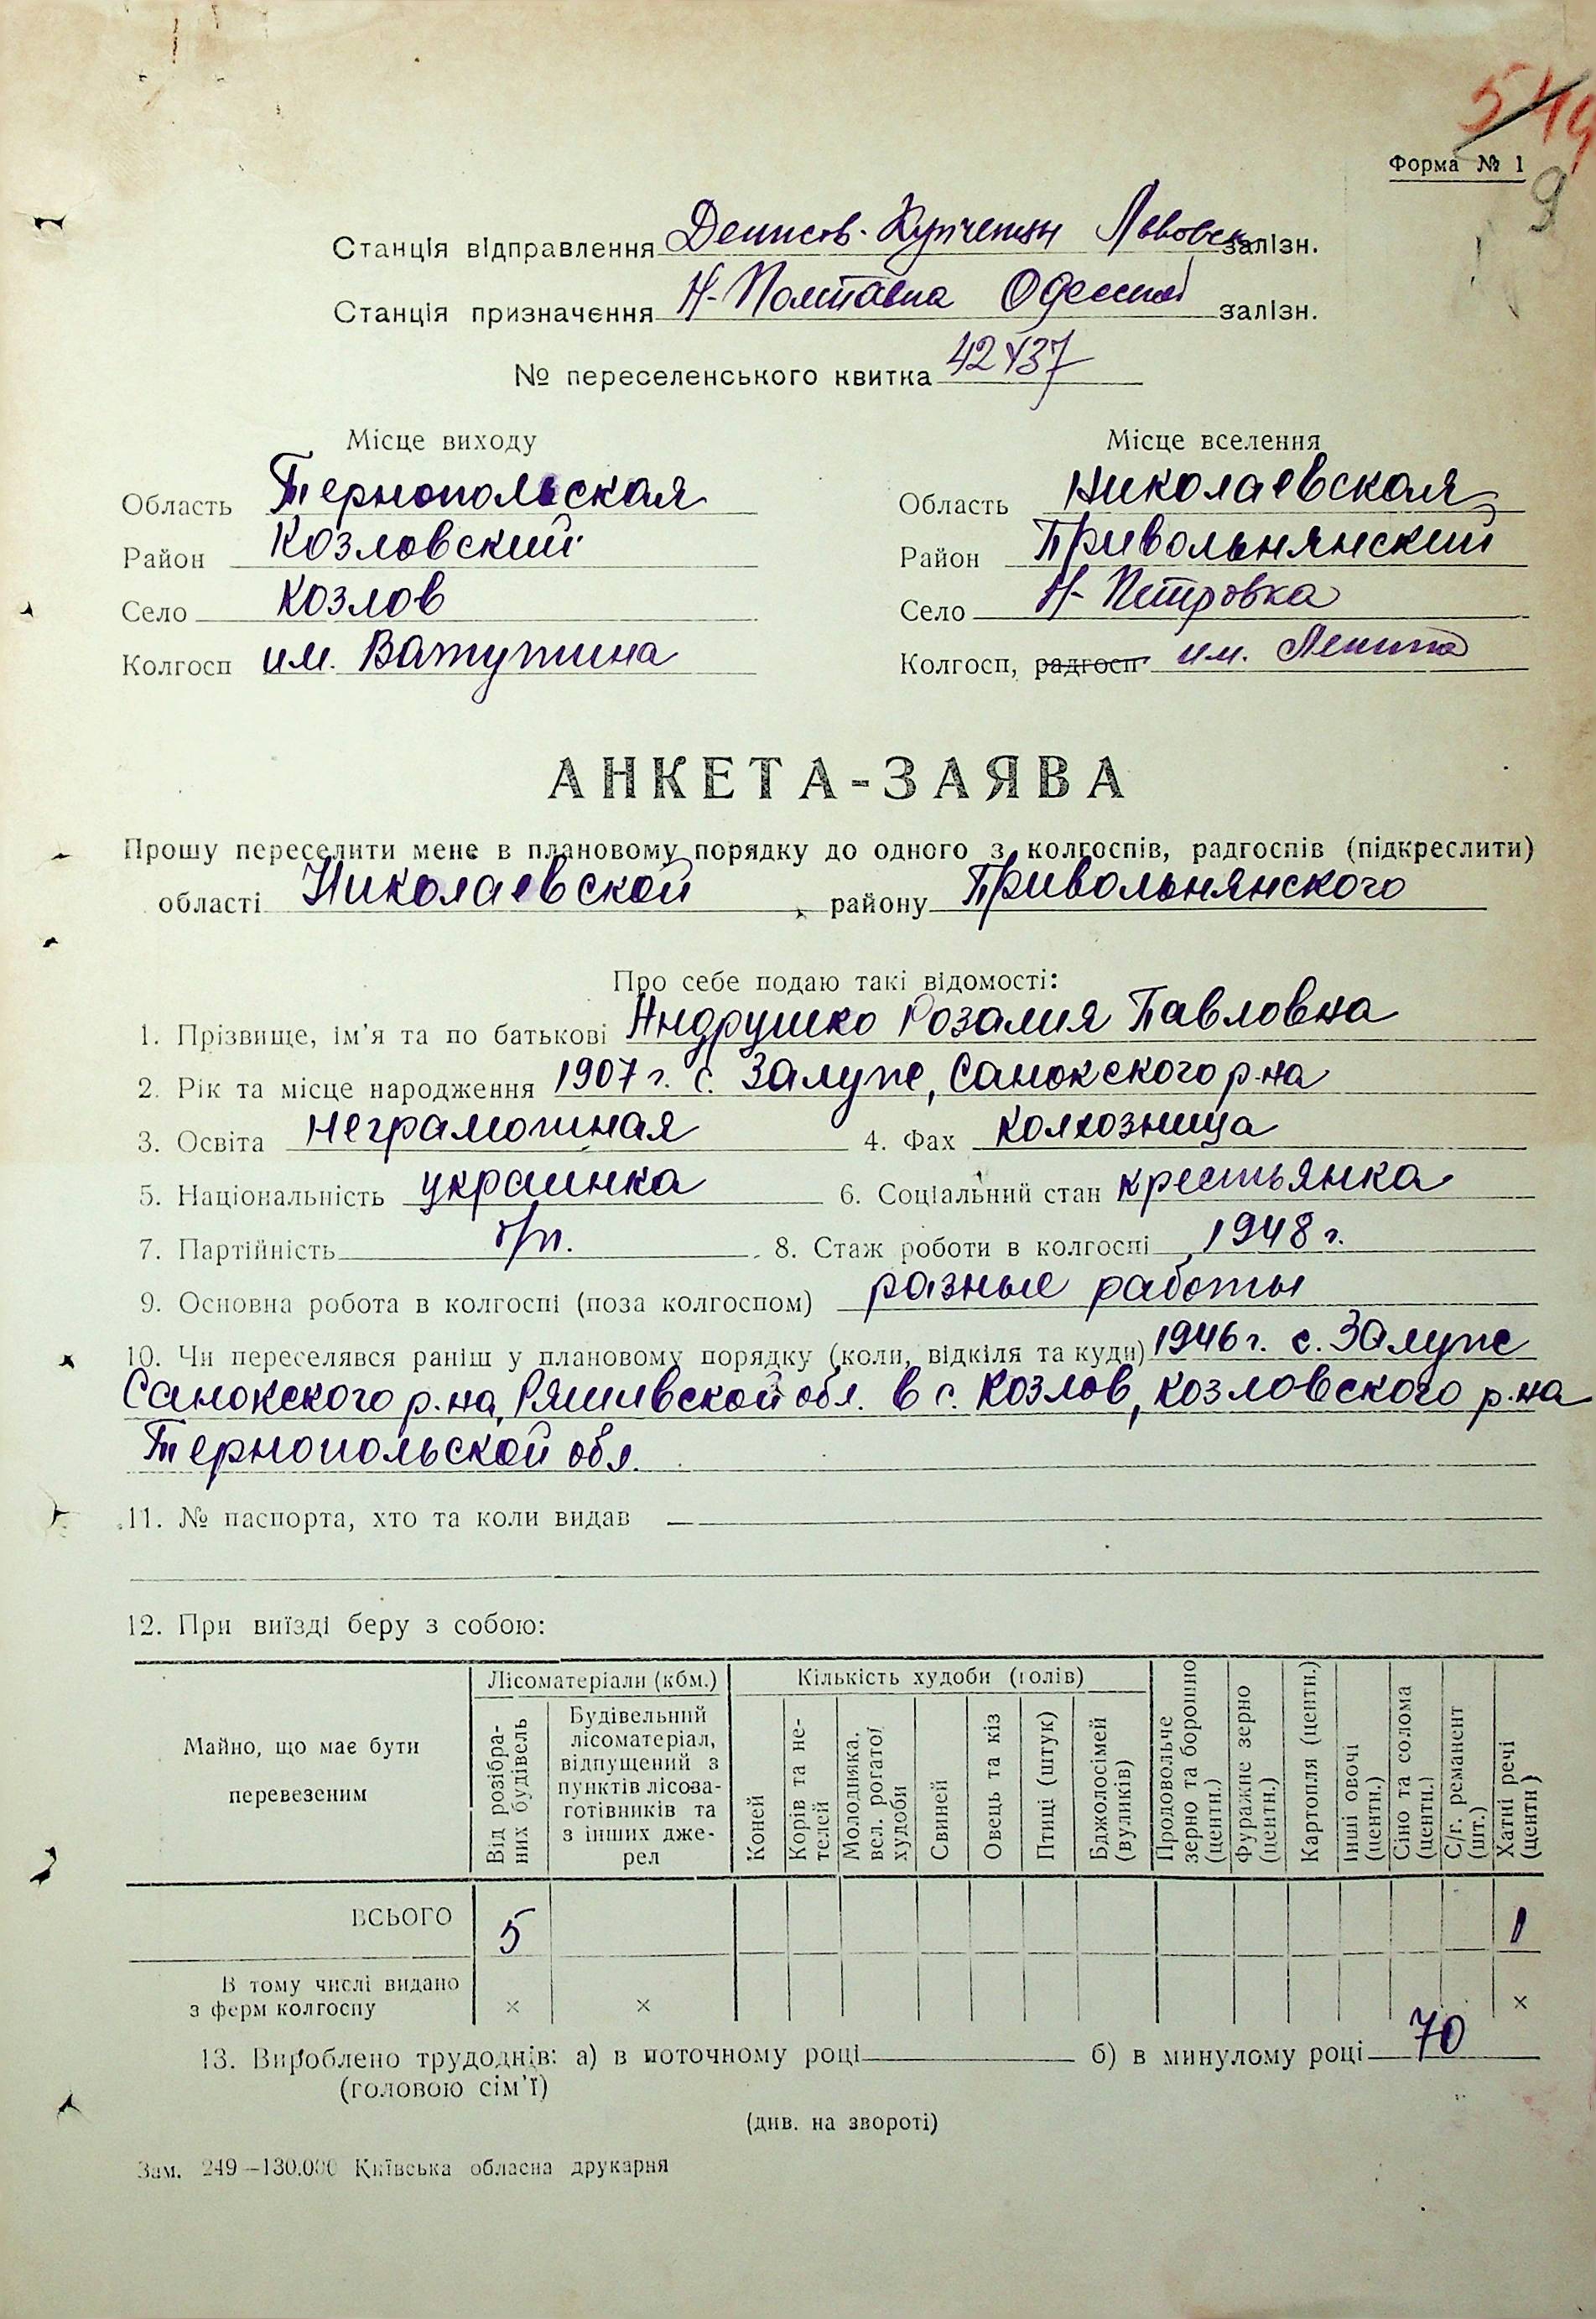 544
Форма № 1
9
Станція відправлення Денисов-Купчинцы Львовск залізн.
Станція призначення Н-Полтавка Одесской залізн.
№ переселенського квитка 42437
Місце виходу Місце вселення
Область Тернопольская Область Николаевская
Район Козловский Район Привольнянский
Село Козлов Село Н-Петровка
Колгосп им. Ватутина Колгосп, радгосп им. Ленина
АНКЕТА-ЗАЯВА
Прошу переселити мене в плановому порядку до одного з колгоспів, радгоспів (підкреслити)
області Николаевской, району Привольнянского
Про себе подаю такі відомості:
1. Прізвище, ім'я та по батькові Андрушко Розалия Павловна
2. Рік та місце народження 1907 г. с. Залуже, Санокского р-на
3. Освіта неграмотная 4. Фах колхозница
5. Національність украинка 6. Соціальний стан крестьянка
7. Партійність б/п. 8. Стаж роботи в колгоспі 1948 г.
9. Основна робота в колгоспі (поза колгоспом) разные работы
10. Чи переселявся раніш у плановому порядку (коли, відкіля та куди) 1946 г. с. Залуже
Санокского р-на, Ряшивской обл. в с. Козлов, Козловского р-на
Тернопольской обл.
11. № паспорта, хто та коли видав —
12. При виїзді беру з собою:
Майно, що має бути перевезеним
Лісоматеріали (кбм.)
Від розібраних будівель
Будівельний лісоматеріал, відпущений з пунктів лісозаготівників та з інших джерел
Кількість худоби (голів)
Коней
Корів та нетелей
Молодняка. вел. рогатої худоби
Свиней
Овець та кіз
Птиці (штук)
Бджолосімей (вуликів)
Продовольче зерно та борошно (центн.)
Фуражне зерно (центн.)
Картопля (центн.)
Інші овочі (центн.)
Сіно та солома (центн.)
С/г. реманент (шт.)
Хатні речі (центн)
ВСЬОГО 5 1
В тому числі видано
з ферм колгоспу × × ×
13. Вироблено трудоднів: а) в поточному році б) в минулому році 70
(головою сім'ї)
(див. на звороті)
Зам. 249—130.000 Київська обласна друкарня